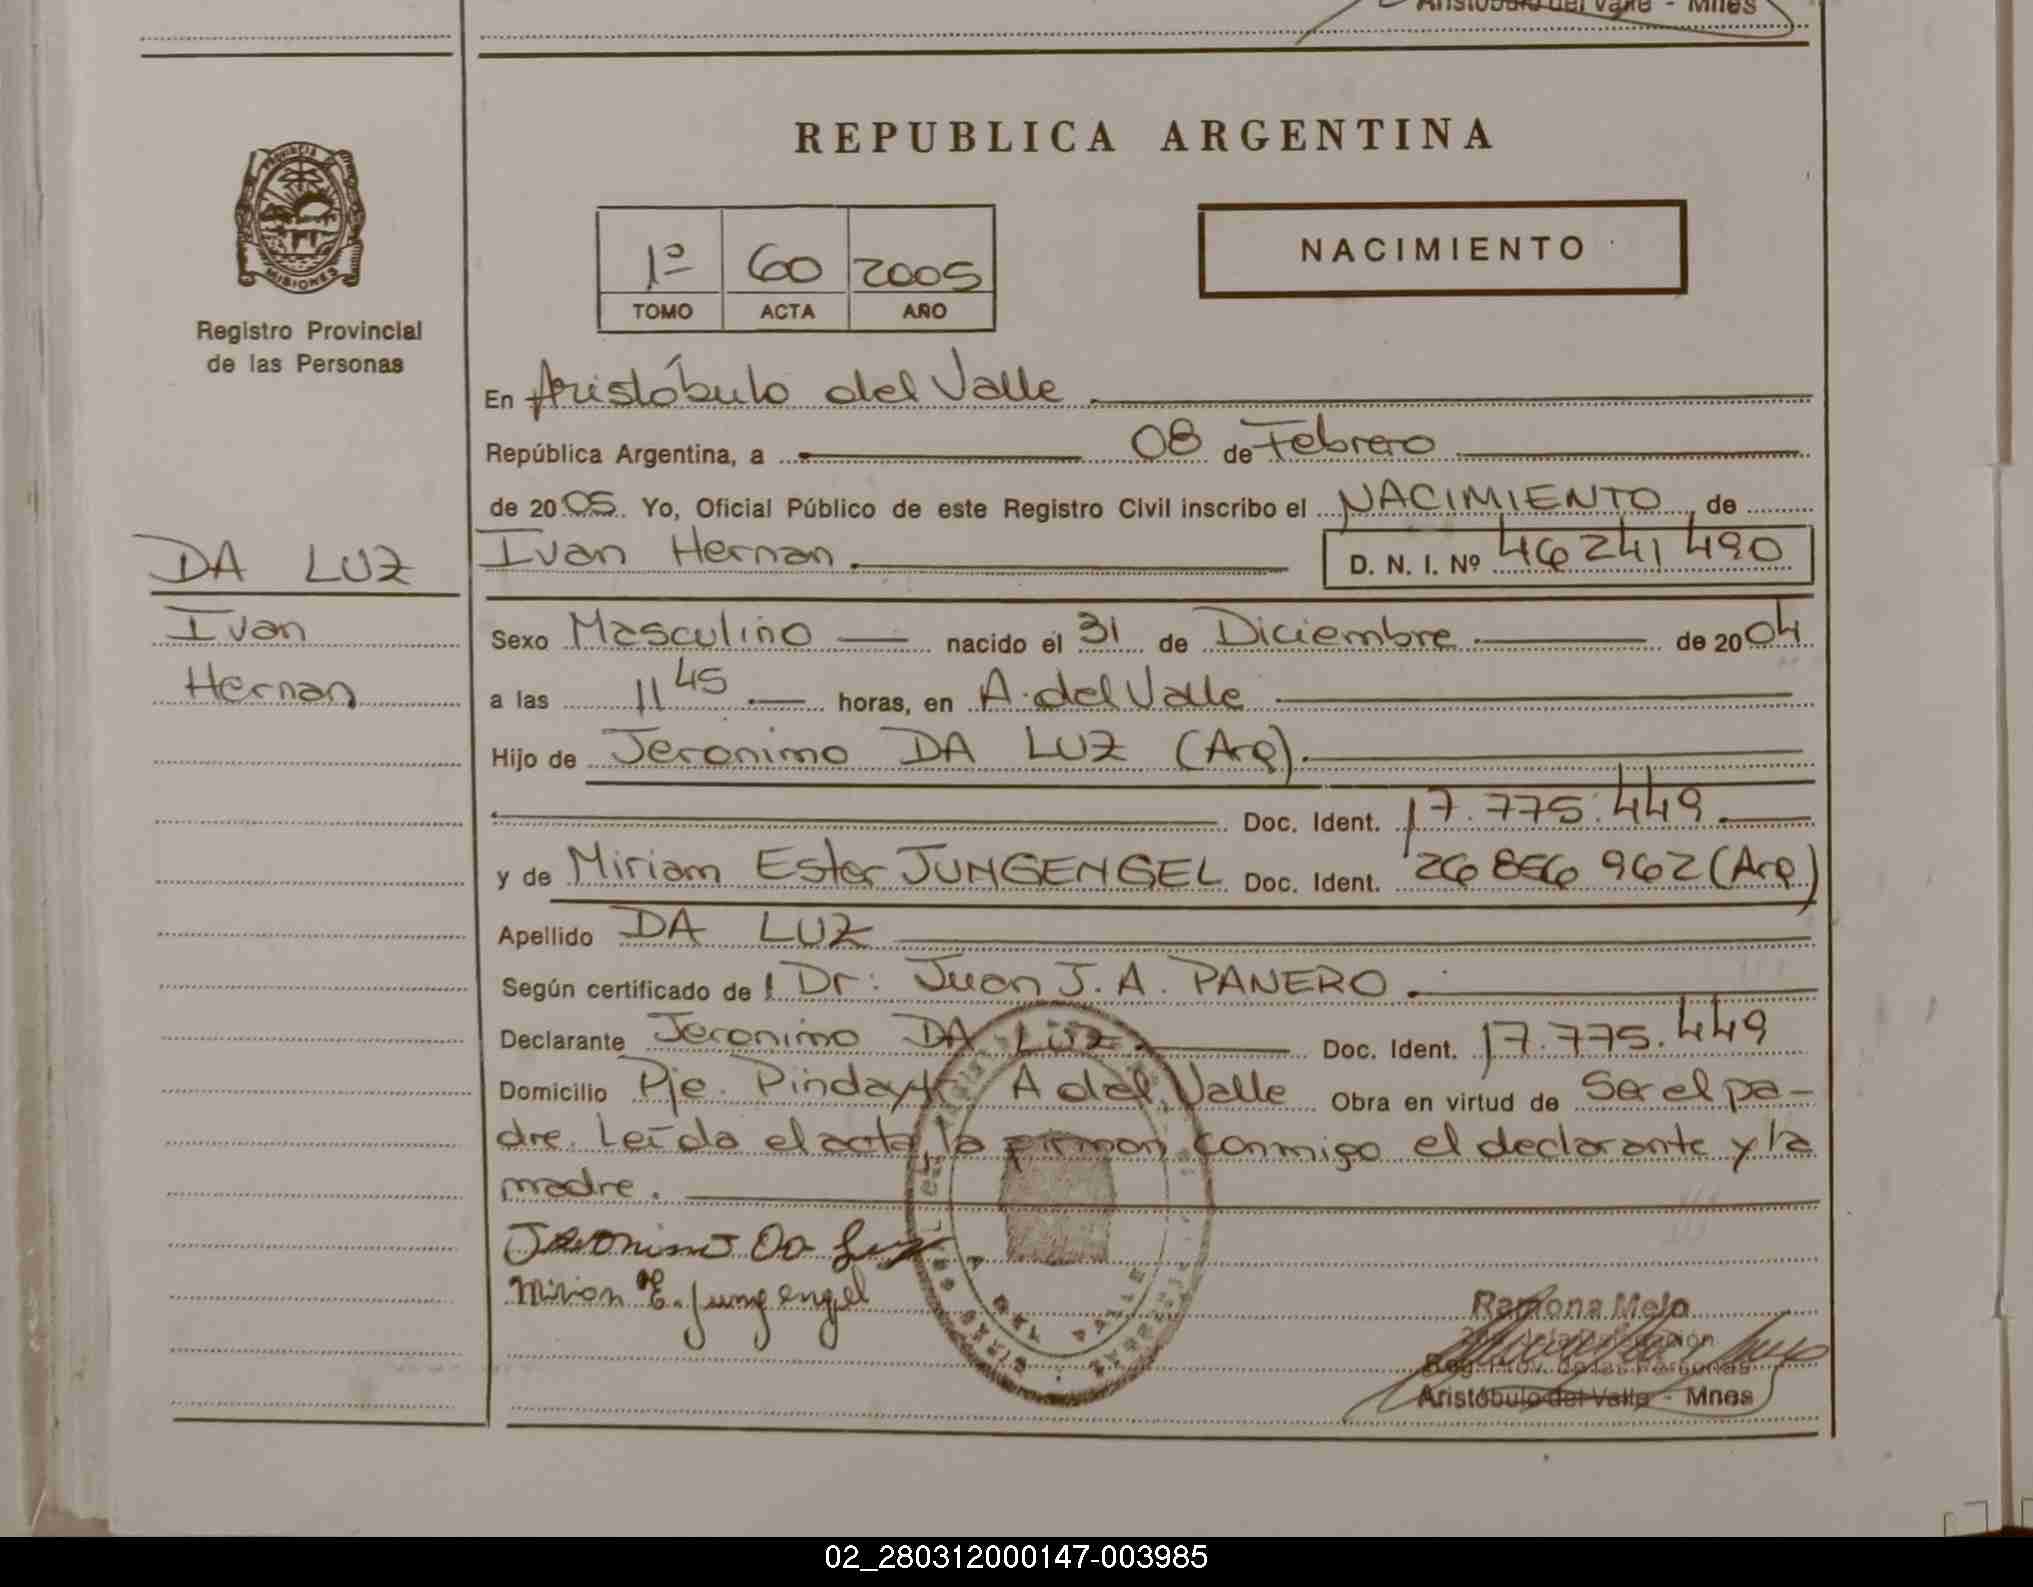 Aristóbulo del Valle - Mnes
REPUBLICA ARGENTINA
PROVINCIA DE
MISIONES
Registro Provincial
de las Personas
1º 60 2005
TOMO ACTA AÑO
NACIMIENTO
En Aristóbulo del Valle
República Argentina, a 08 de Febrero
de 2005. Yo, Oficial Público de este Registro Civil inscribo el NACIMIENTO, de
DA LUZ
Ivan
Hernan
Ivan Hernan. D. N. I. Nº 46 241 490
Sexo Masculino nacido el 31 de Diciembre de 2004
a las 11 45 horas, en A. del Valle
Hijo de Jeronimo DA LUZ (Arg).
Doc. Ident. 17.775.449
y de Miriam Ester JUNGENGEL Doc. Ident. 26 856 962 (Arg)
Apellido DA LUZ
Según certificado de Dr: Juan J. A. PANERO.
Declarante Jeronimo DA LUZ. Doc. Ident. 17.775.449
Domicilio Pje. Pindayti A del Valle Obra en virtud de Ser el pa-
dre. Leída el acta, la firman conmigo el declarante y la
madre.
Jeronimo Da Luz
Mirian E. Jungengel
Ramona Melo
de la Delegación
Reg. Prov. de las Personas
Aristóbulo del Valle - Mnes
02_280312000147-003985